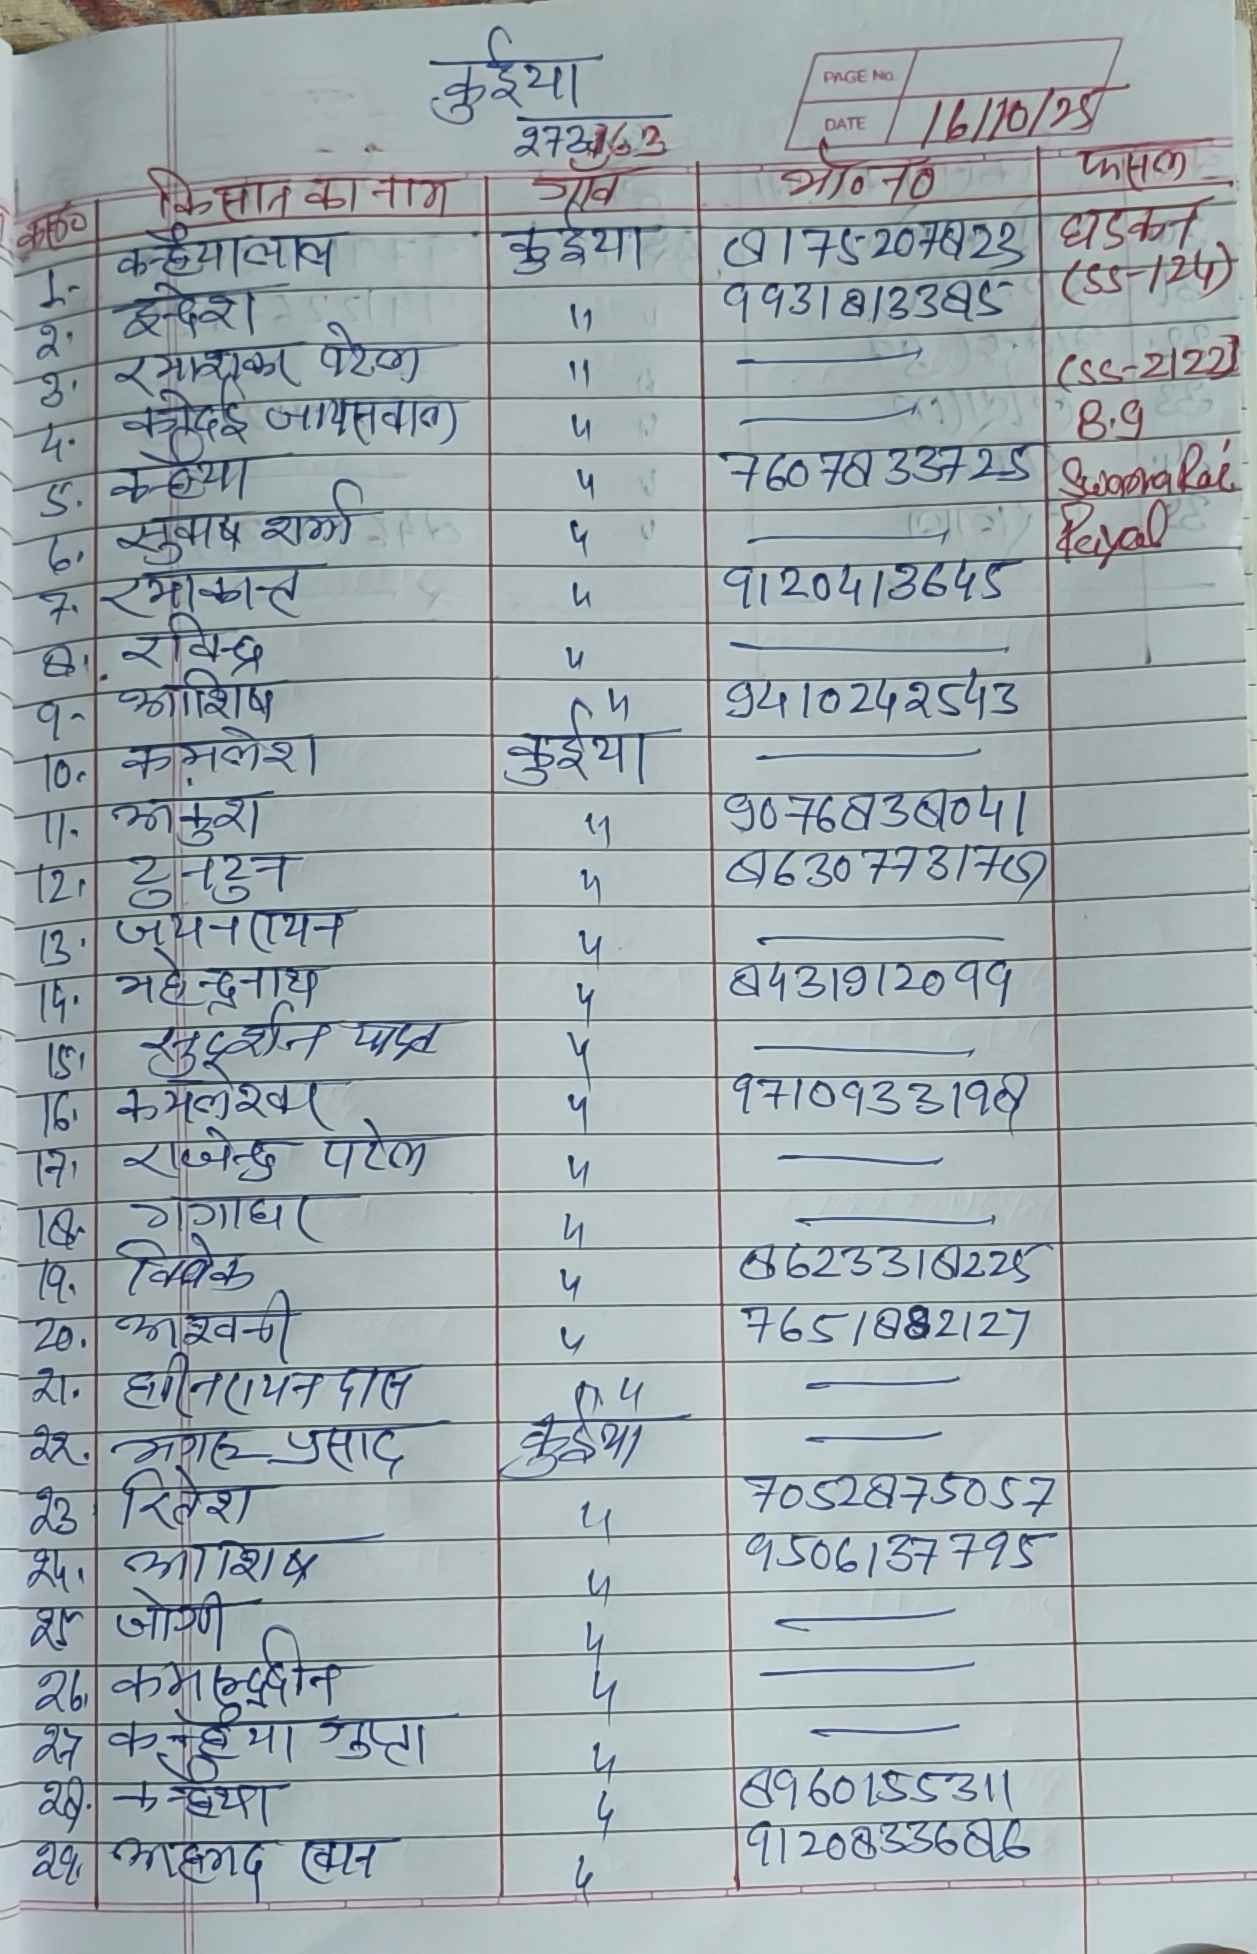 कुईया
272163
PAGE No.
DATE 16/10/25
क्र०सं० किसान का नाम गाँव मो० न० फसल
1- कन्हैयालाल कुईया 8175207823 धडकन
2. इन्द्रेश " 9931813385 (SS-124)
3. रमाशंकर पटेल " — (SS-2122)
4. कोदई जायसवाल " — B.9
5. कन्हैया " 7607833725 Swarna Rai
6. सुबाष शर्मा " —
7. रमाकान्त " 9120413645
8. रविन्द्र " —
9- आशिष " 9410242543
10. कमलेश कुईया —
11. अंकुश " 9076838041
12. टुनटुन " 8630773178
13. जयनरायन " —
14. महेन्द्रनाथ " 8431912099
15. सुदर्शन यादव " —
16. कमलेश्वर " 9710933198
17. राजेन्द्र पटेल " —
18. गंगाधर " —
19. विवेक " 8623318225
20. अश्वनी " 7651882127
21. हरिनरायन दास " —
22. मंगल प्रसाद कुईया —
23 रितेश " 7052875057
24. आशिष " 9506137795
25 जोगी " —
26. कमालुद्दीन " —
27 कन्हैया गुप्ता " —
28. कन्हैया " 8960155311
29. अहमद खान " 9120833686